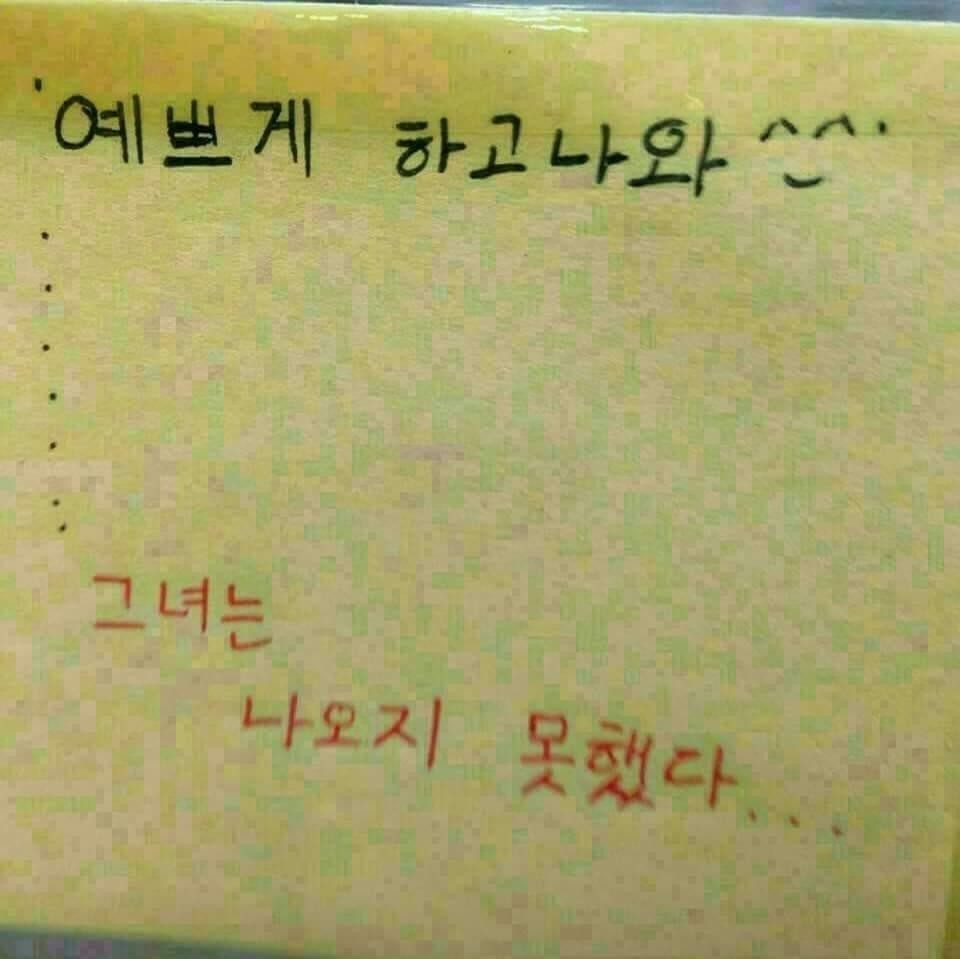 '예쁘게 하고나와 ^^.
.
.
.
.
.
.
.
그녀는
나오지 못했다...